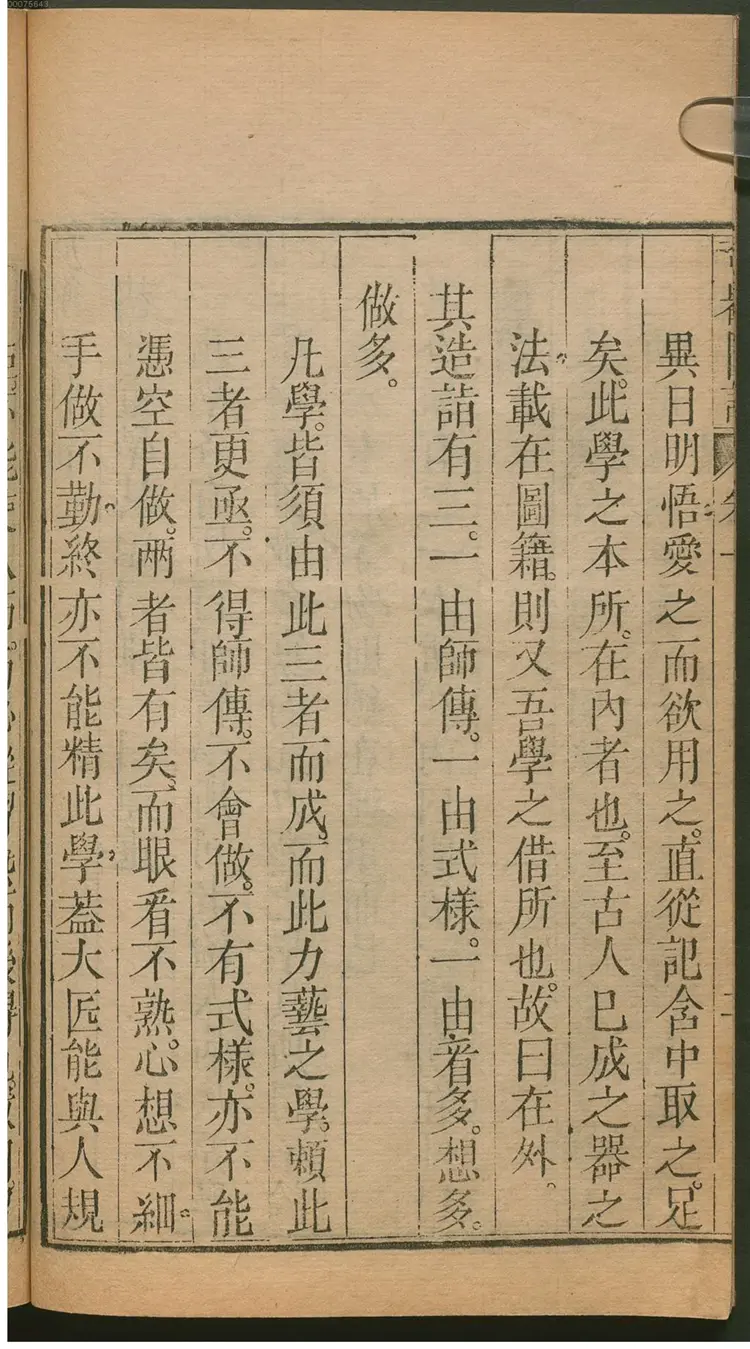 00075643
異日明悟愛之而欲用之。直從記含中取之。足
矣。此學之本所。在內者也。至古人已成之器之
法。載在圖籍。則又吾學之借所也。故曰在外。
其造詣有三。一由師傳。一由式樣。一由看多。想多。
做多。
凡學。皆須由此三者而成。而此力藝之學。賴此
三者更亟。不得師傳。不會做。不有式樣。亦不能
憑空自做。兩者皆有矣。而眼看不熟。心想不細。
手做不勤。終亦不能精此學。蓋大匠能與人規